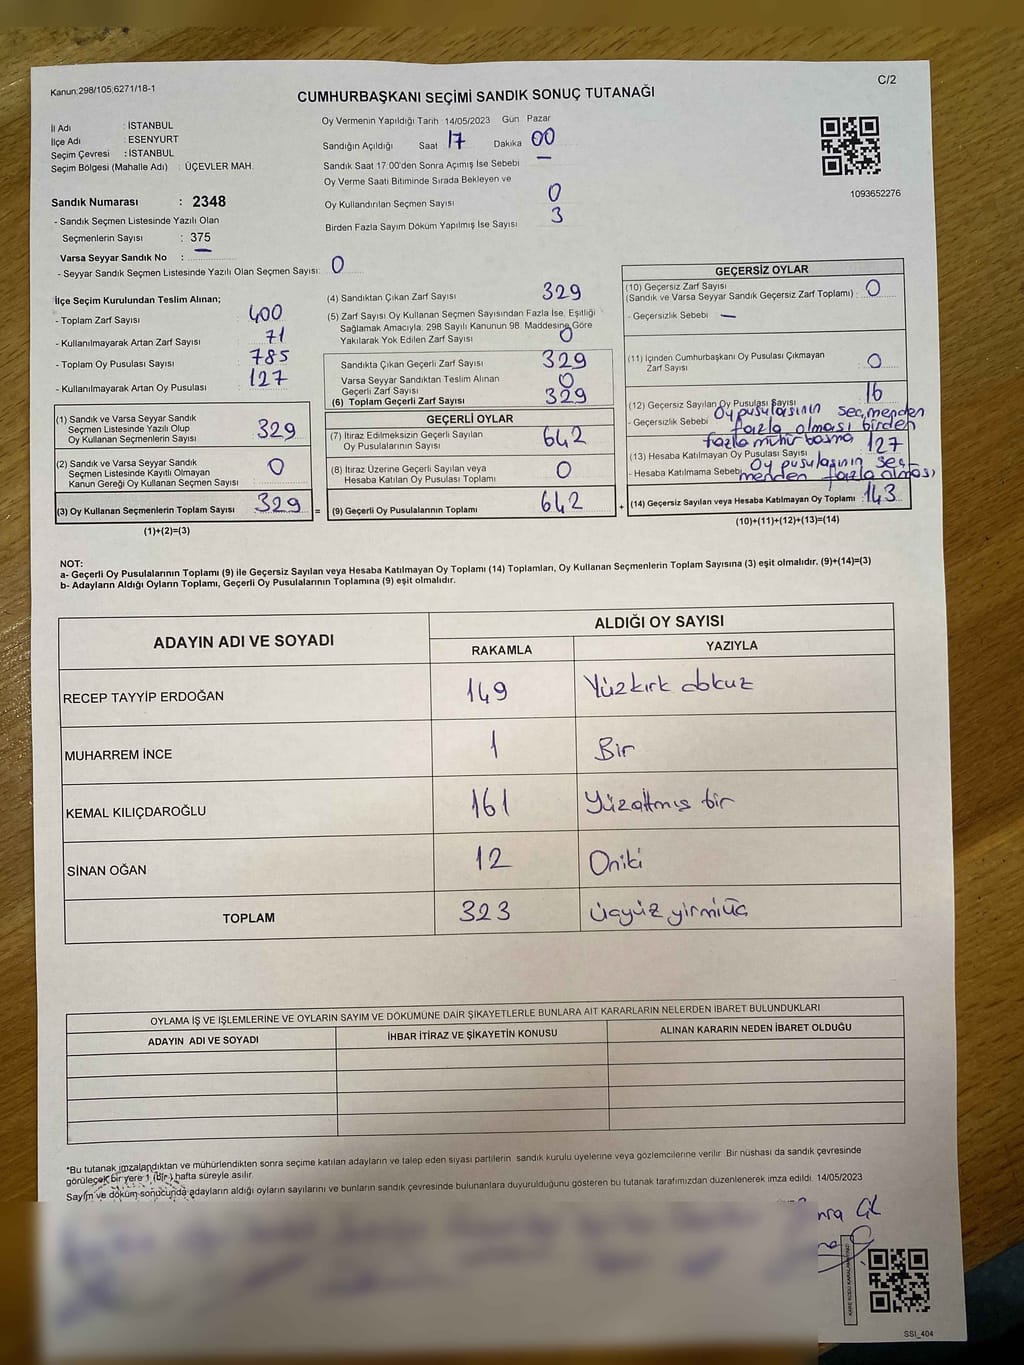 Kanun:298/105;6271/18-1
C/2
CUMHURBAŞKANI SEÇİMİ SANDIK SONUÇ TUTANAĞI
İl Adı : İSTANBUL
İlçe Adı : ESENYURT
Seçim Çevresi : İSTANBUL
Seçim Bölgesi (Mahalle Adı) : ÜÇEVLER MAH.
Oy Vermenin Yapıldığı Tarih :14/05/2023 Gün Pazar
Sandığın Açıldığı Saat 17 Dakika 00
Sandık Saat 17:00'den Sonra Açımış İse Sebebi —
Oy Verme Saati Bitiminde Sırada Bekleyen ve
Oy Kullandırılan Seçmen Sayısı 0
Birden Fazla Sayım Döküm Yapılmış İse Sayısı 3
1093652276
Sandık Numarası : 2348
- Sandık Seçmen Listesinde Yazılı Olan
Seçmenlerin Sayısı : 375
Varsa Seyyar Sandık No : —
- Seyyar Sandık Seçmen Listesinde Yazılı Olan Seçmen Sayısı: 0
İlçe Seçim Kurulundan Teslim Alınan;
- Toplam Zarf Sayısı 400
- Kullanılmayarak Artan Zarf Sayısı 71
- Toplam Oy Pusulası Sayısı 785
- Kullanılmayarak Artan Oy Pusulası 127
(1) Sandık ve Varsa Seyyar Sandık
Seçmen Listesinde Yazılı Olup
Oy Kullanan Seçmenlerin Sayısı 329
(2) Sandık ve Varsa Seyyar Sandık
Seçmen Listesinde Kayıtlı Olmayan
Kanun Gereği Oy Kullanan Seçmen Sayısı 0
(3) Oy Kullanan Seçmenlerin Toplam Sayısı 329 =
(1)+(2)=(3)
(4) Sandıktan Çıkan Zarf Sayısı 329
(5) Zarf Sayısı Oy Kullanan Seçmen Sayısından Fazla İse, Eşitliği
Sağlamak Amacıyla, 298 Sayılı Kanunun 98. Maddesine Göre
Yakılarak Yok Edilen Zarf Sayısı 0
Sandıkta Çıkan Geçerli Zarf Sayısı 329
Varsa Seyyar Sandıktan Teslim Alınan
Geçerli Zarf Sayısı 0
(6) Toplam Geçerli Zarf Sayısı 329
GEÇERLİ OYLAR
(7) İtiraz Edilmeksizin Geçerli Sayılan
Oy Pusulalarının Sayısı 642
(8) İtiraz Üzerine Geçerli Sayılan veya
Hesaba Katılan Oy Pusulası Toplamı 0
(9) Geçerli Oy Pusulalarının Toplamı 642 +
GEÇERSİZ OYLAR
(10) Geçersiz Zarf Sayısı
(Sandık ve Varsa Seyyar Sandık Geçersiz Zarf Toplamı) : 0
- Geçersizlik Sebebi —
(11) İçinden Cumhurbaşkanı Oy Pusulası Çıkmayan
Zarf Sayısı 0
(12) Geçersiz Sayılan Oy Pusulası Sayısı 16
- Geçersizlik Sebebi Oy pusulasının seçmenden
fazla olması birden
fazla mühür basma
(13) Hesaba Katılmayan Oy Pusulası Sayısı 127
- Hesaba Katılmama Sebebi Oy pusulasının seç
menden fazla olması
(14) Geçersiz Sayılan veya Hesaba Katılmayan Oy Toplamı : 143
(10)+(11)+(12)+(13)=(14)
NOT:
a- Geçerli Oy Pusulalarının Toplamı (9) ile Geçersiz Sayılan veya Hesaba Katılmayan Oy Toplamı (14) Toplamları, Oy Kullanan Seçmenlerin Toplam Sayısına (3) eşit olmalıdır. (9)+(14)=(3)
b- Adayların Aldığı Oyların Toplamı, Geçerli Oy Pusulalarının Toplamına (9) eşit olmalıdır.
ADAYIN ADI VE SOYADI
ALDIĞI OY SAYISI
RAKAMLA YAZIYLA
RECEP TAYYİP ERDOĞAN 149 Yüzkırk dokuz
MUHARREM İNCE 1 Bir
KEMAL KILIÇDAROĞLU 161 Yüzaltmış bir
SİNAN OĞAN 12 Oniki
TOPLAM 323 üçyüz yirmiüç
OYLAMA İŞ VE İŞLEMLERİNE VE OYLARIN SAYIM VE DÖKÜMÜNE DAİR ŞİKAYETLERLE BUNLARA AİT KARARLARIN NELERDEN İBARET BULUNDUKLARI
ADAYIN ADI VE SOYADI İHBAR İTİRAZ VE ŞİKAYETİN KONUSU ALINAN KARARIN NEDEN İBARET OLDUĞU
*Bu tutanak imzalandıktan ve mühürlendikten sonra seçime katılan adayların ve talep eden siyasi partilerin sandık kurulu üyelerine veya gözlemcilerine verilir. Bir nüshası da sandık çevresinde
görülecek bir yere 1 (bir) hafta süreyle asılır.
Sayım ve döküm sonucunda adayların aldığı oyların sayılarını ve bunların sandık çevresinde bulunanlara duyurulduğunu gösteren bu tutanak tarafımızdan düzenlenerek imza edildi. 14/05/2023
SSI_404